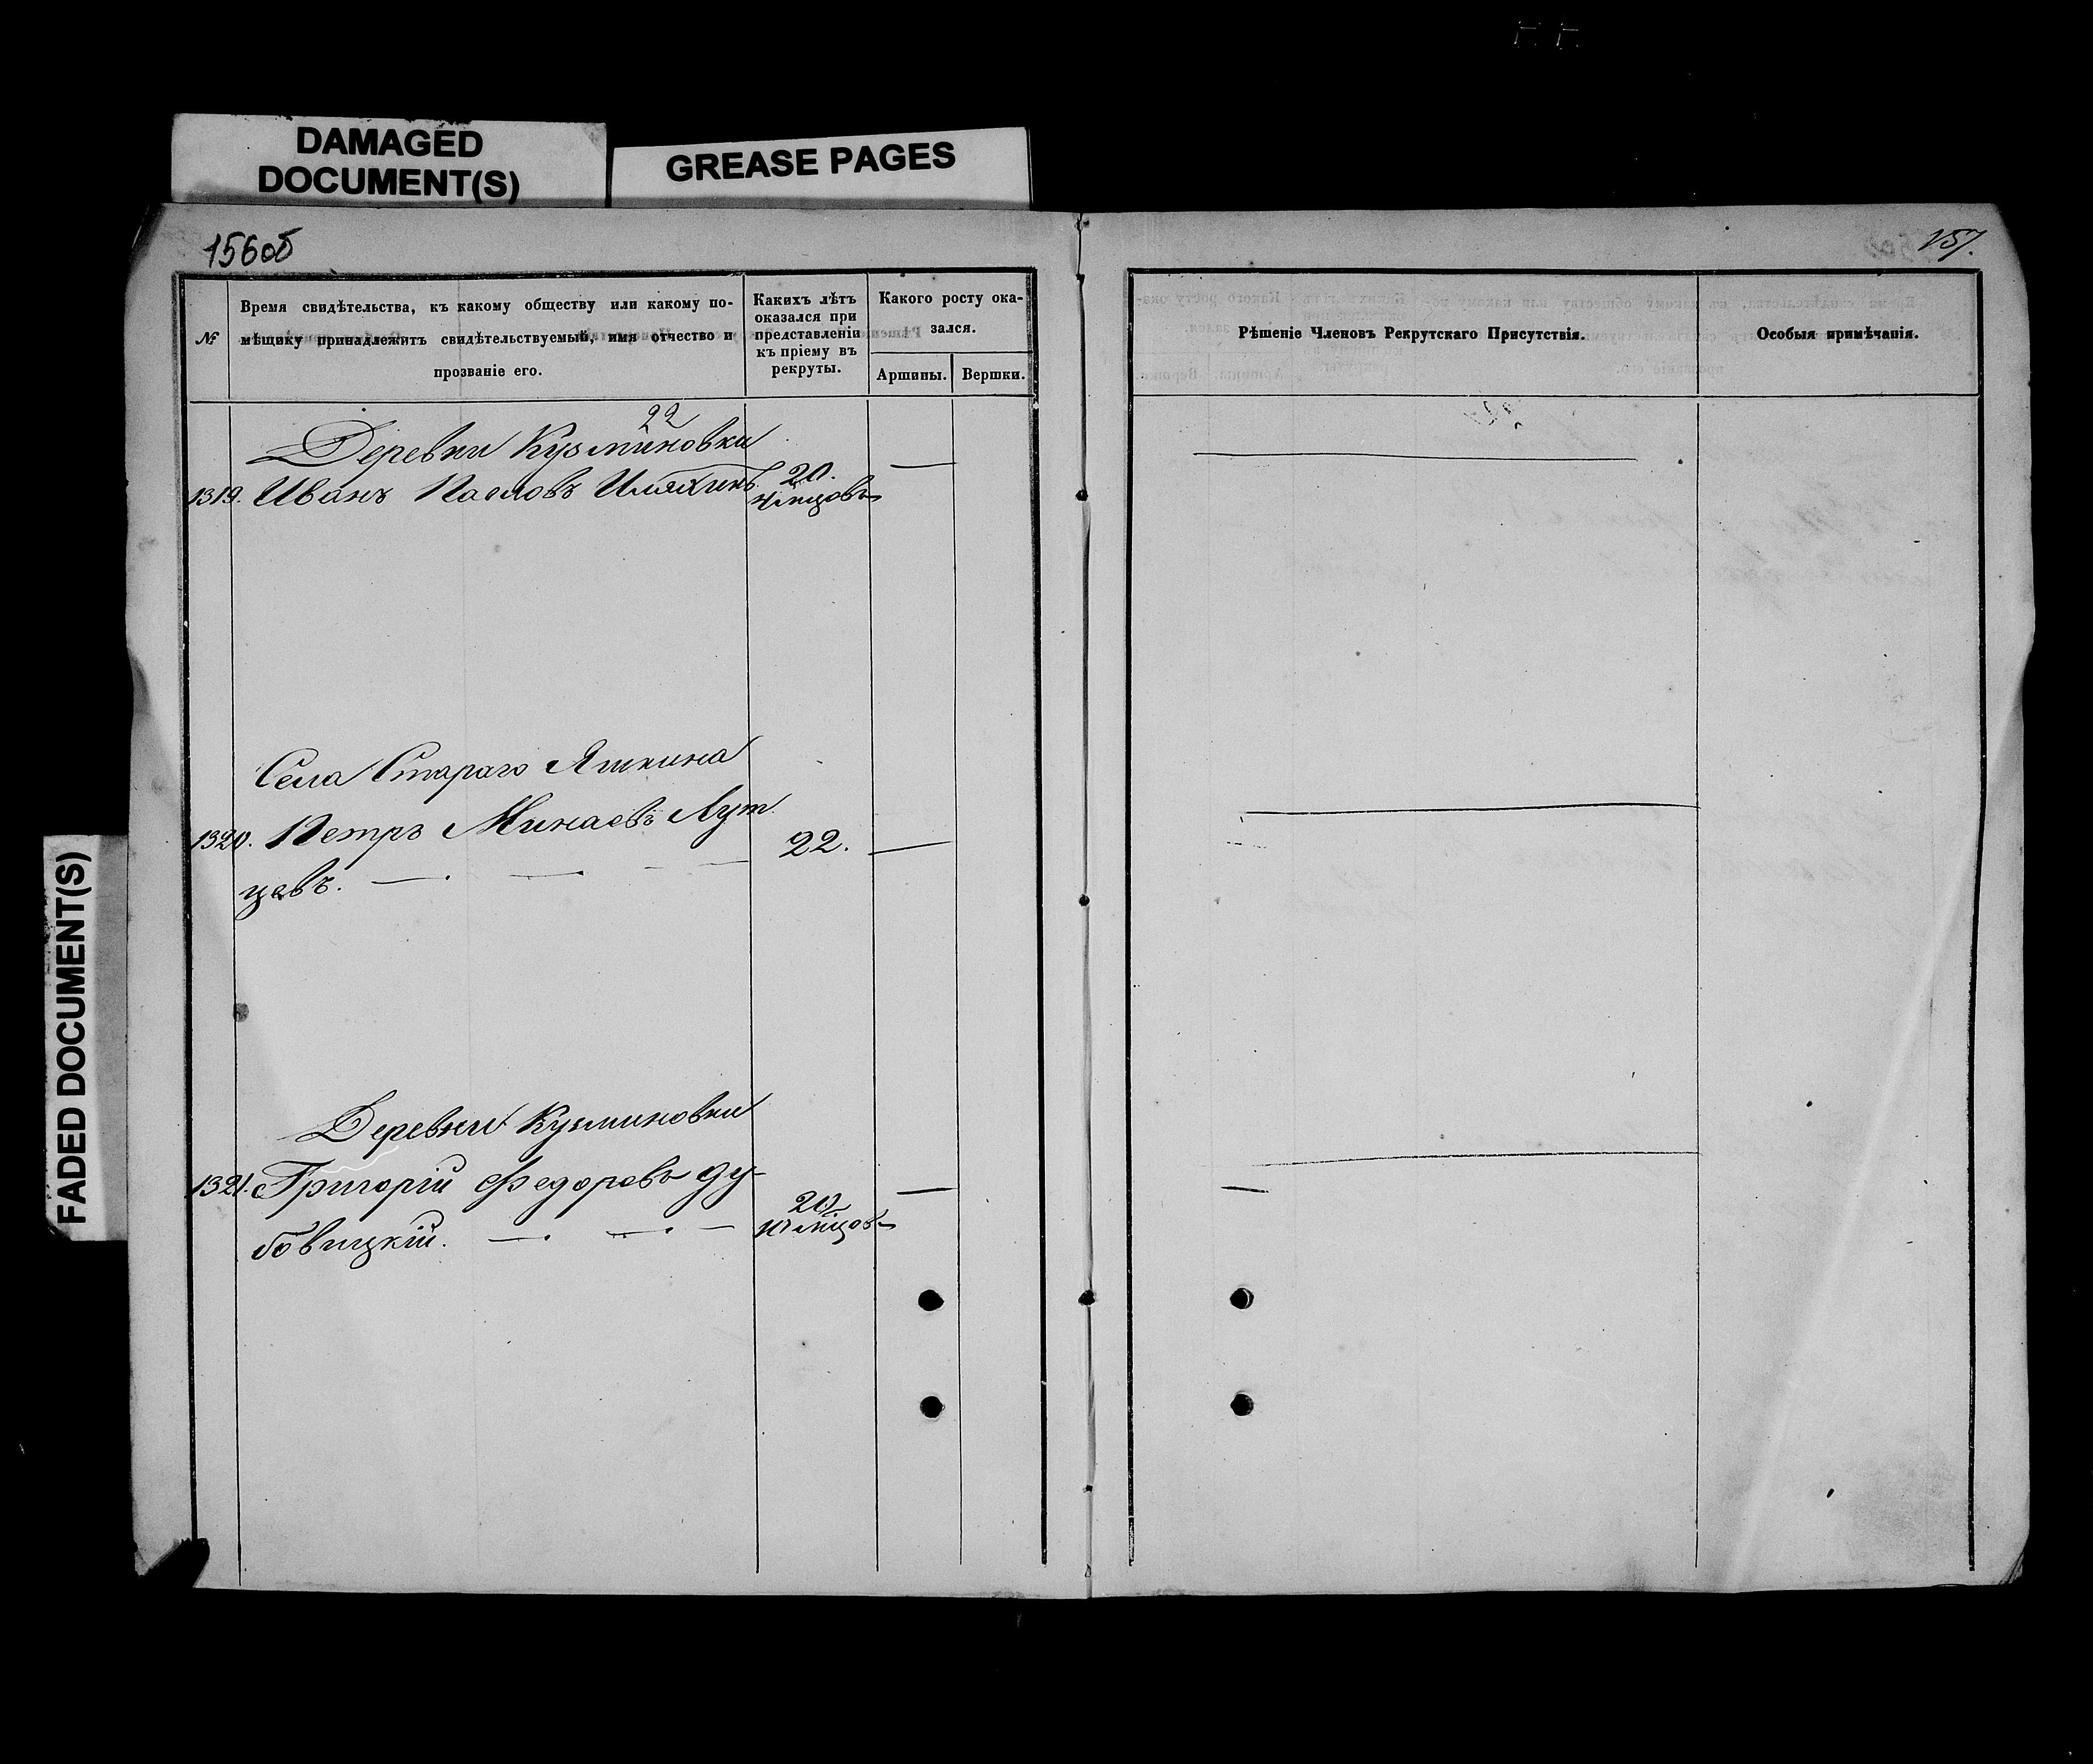 DAMAGED
DOCUMENT(S)
GREASE PAGES
FADED DOCUMENT(S)
156об
№
Время свидѣтельства, къ какому обществу или какому по-
мѣщику принадлежитъ свидѣтельствуемый, имя отчество и
прозваніе его.
Какихъ лѣтъ
оказался при
представленіи
къ пріему въ
рекруты.
Какого росту ока-
зался.
Аршины.
Вершки.
22
Деревни Кузминовки
1319. Иванъ Павловъ
20.
Села Стараго Яшкина
1320. Петръ Минаевъ Лут
цевъ.
22.
Деревни Кузминовки
1321. Григорій Федоровъ Ду-
бовицкій.
20
157.
Рѣшеніе Членовъ Рекрутскаго Присутствія.
Особыя примѣчанія.